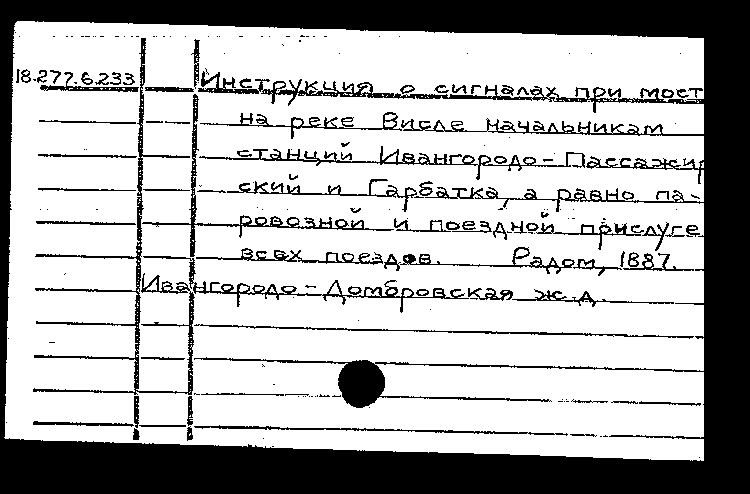 18.277.6.233 Инструкция о сигналах при мост
на реке Висле начальникам
станций Ивангородо-Пассажир
ский и Гарбатка, а равно па-
ровозной и поездной прислуге
всех поездов. Радом, 1887.
Ивангородо-Домбровская ж.д.